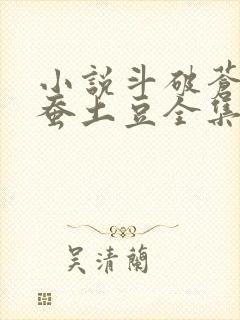 小說斗破蒼
蚕土豆全集
吴清蘭